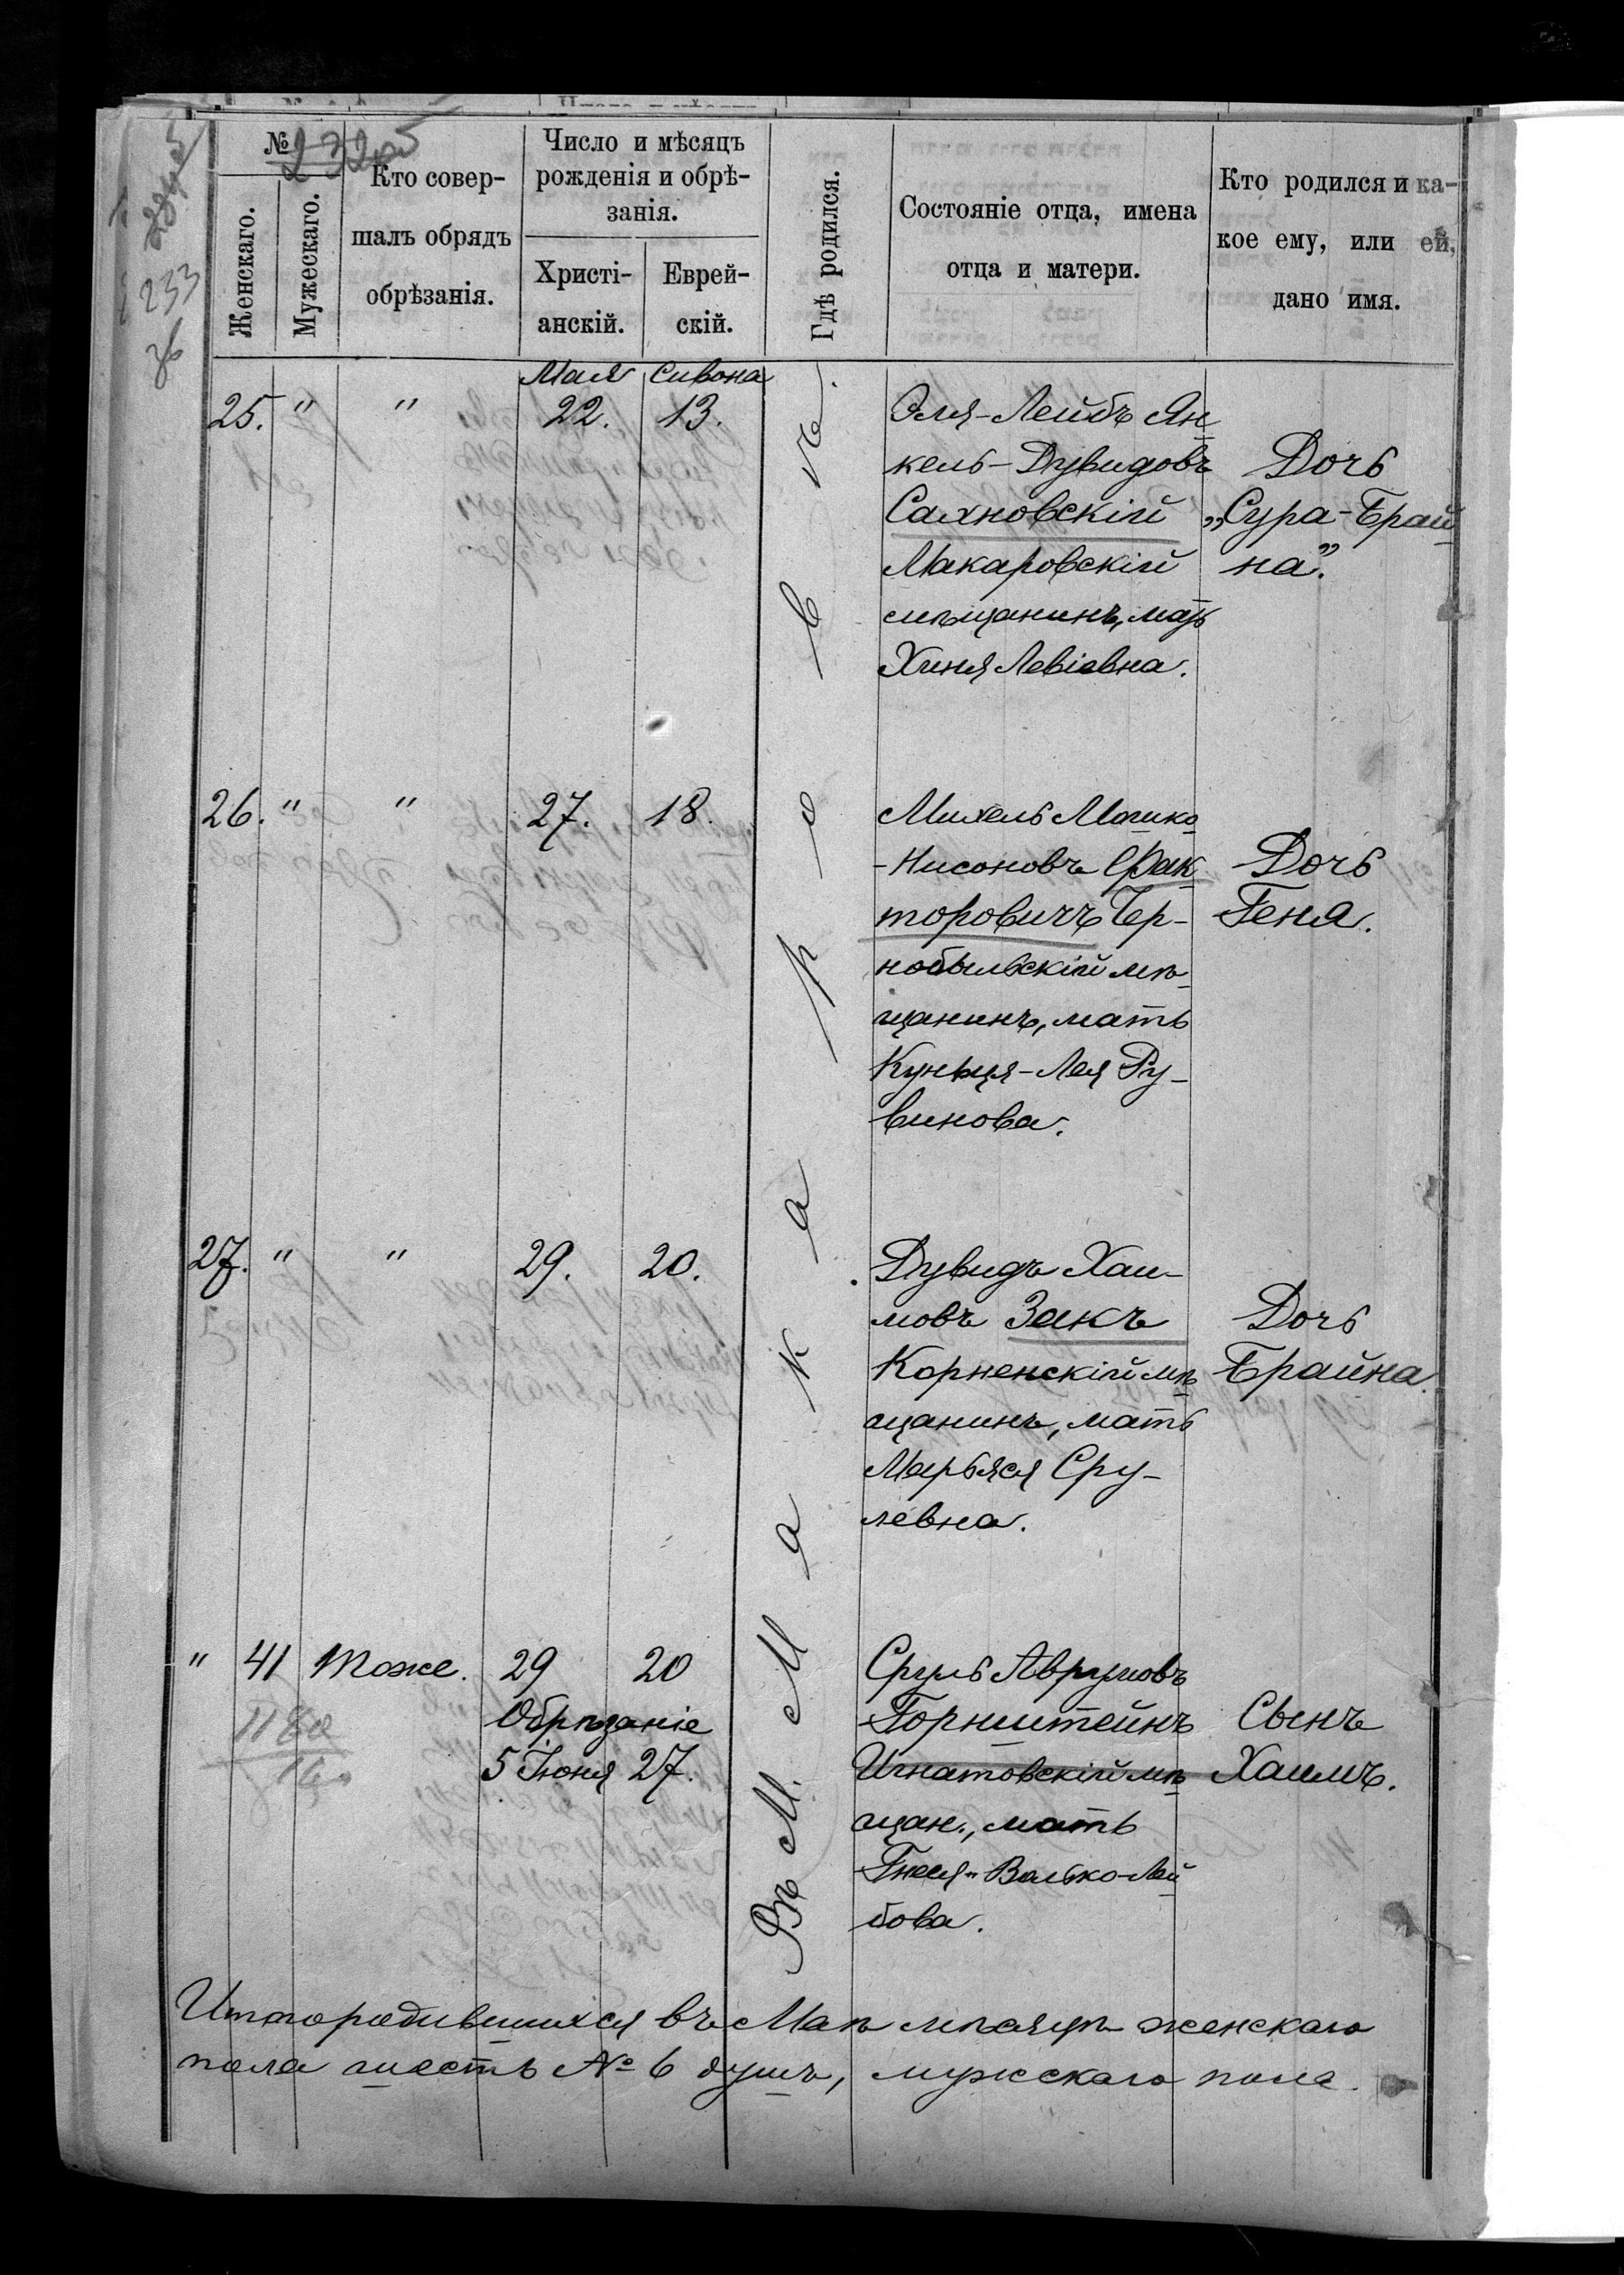 №
2325
Женскаго.
Мужескаго.
Кто совер-
шалъ обрядъ
обрѣзанія.
Число и мѣсяцъ
рожденія и обрѣ-
занія.
Христі-
анскій.
Еврей-
скій.
Гдѣ родился.
Состояніе отца, имена
отца и матери.
Кто родился и ка-
кое ему, или ей,
дано имя.
233
Мая Сивона
25. " " 22. 13.
Эля-Лейбъ Ян-
кель-Дувидовъ
Сахновскій
Макаровскій
мѣщанинъ, мать
Хиня Левіевна.
Дочь
„Сура-Брай-
на”.
26. " " 27. 18.
Михель Мошко
-Нисоновъ Фак-
торовичъ Чер-
нобыльскій мѣ-
щанинъ, мать
Куньця-Лея Ру-
винова.
Дочь
Геня.
27. " " 29. 20.
Дувидъ Хаи-
мовъ Закъ
Корненскій мѣ-
щанинъ, мать
Марьяся Сру-
левна.
Дочь
Брайна.
" 41 Тоже. 29 20
Обрѣзаніе
5 Іюня 27.
Сруль Аврумовъ
Горнштейнъ
Игнатовскій мѣ-
щан., мать
Гнеся-Волько-Лей-
бова.
Сынъ
Хаимъ.
Въ М. Макаровѣ.
Итого родившихся въ Маѣ мѣсяцѣ женскаго
пола шесть № 6 душъ, мужскаго пола